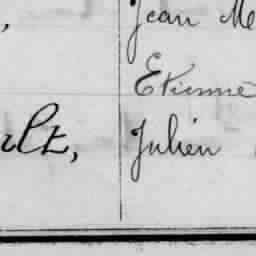 Jean Me
Etienne
ult, Julien